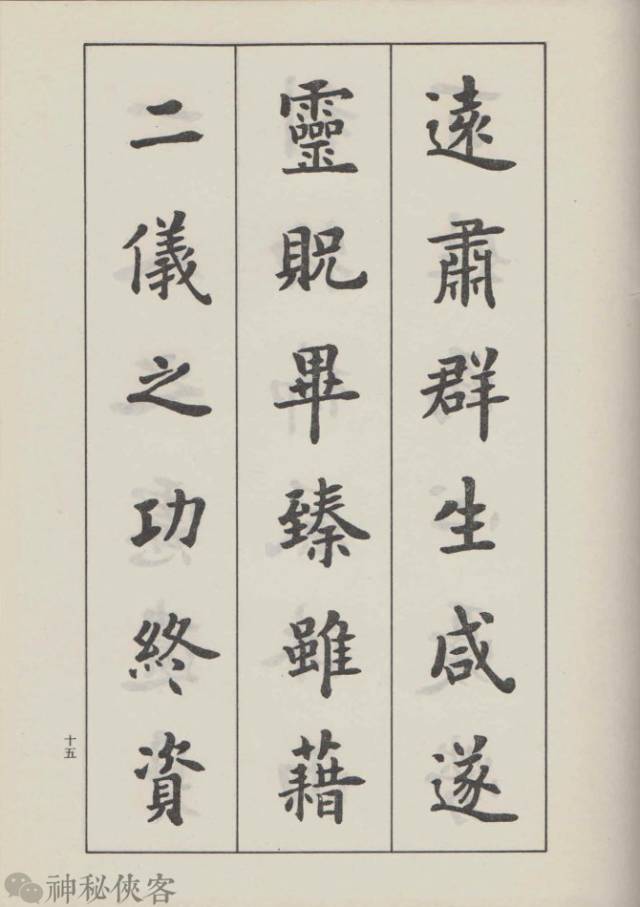 遠肅群生咸遂
靈貺畢臻雖藉
二儀之功終資
十五
神秘俠客